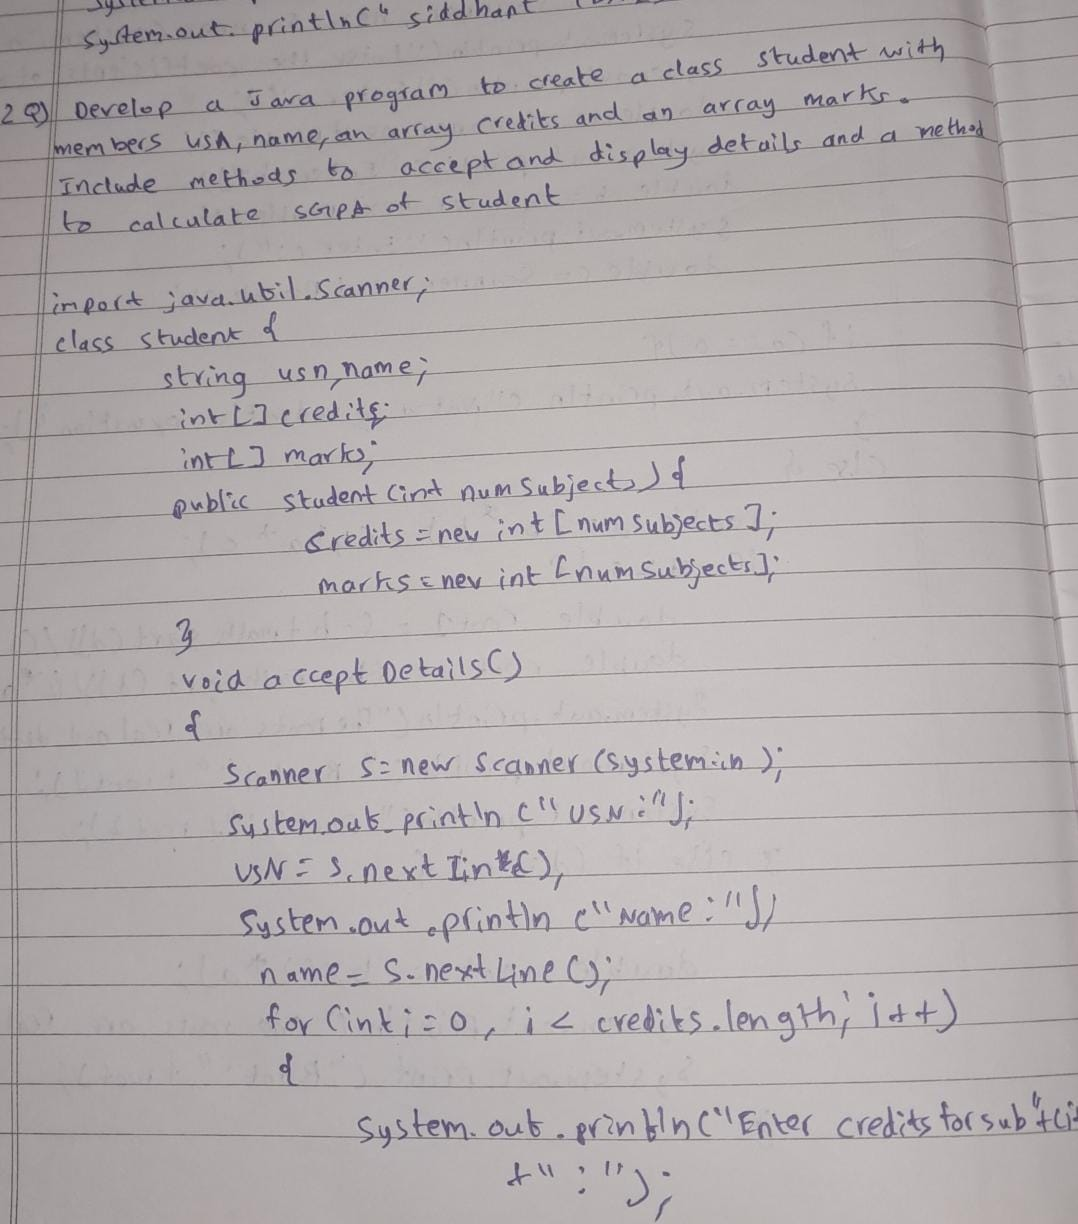 System.out.println(" siddhant
2Q) Develop a Java program to create a class student with
members usn, name, an array credits and an array marks.
Include methods to accept and display details and a method
to calculate SGPA of student
import java.util.Scanner;
class student {
string usn, name;
int [] credits;
int [] marks;
public student (int numSubjects) {
credits = new int [numsubjects];
marks = new int [numSubjects];
}
void accept Details()
{
Scanner s = new scanner (system.in);
System.out.println (" USN :");
USN = s.next Line();
System.out.println (" Name : ");
name = s.nextLine();
for (int i = 0, i < credits.length; i++)
{
System.out.println("Enter credits for sub"+(i+
+" : ");